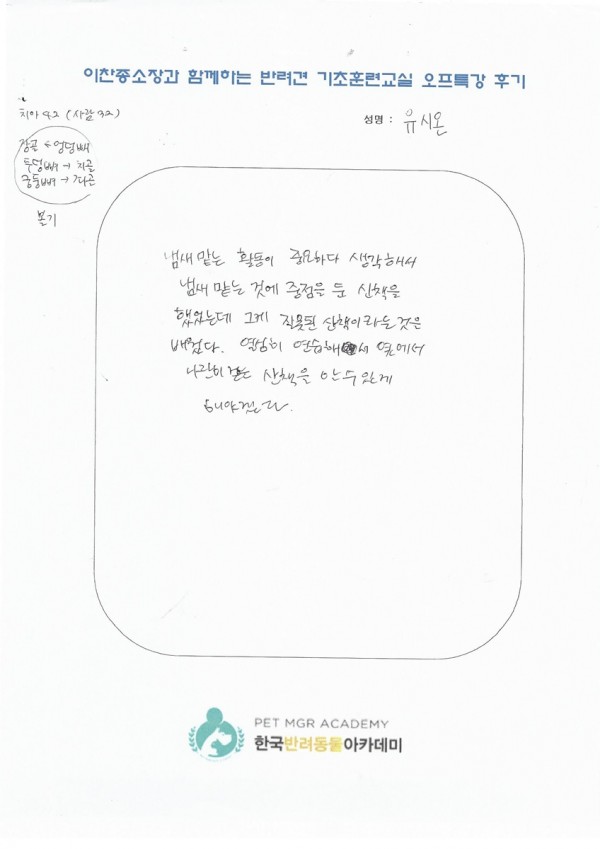 이찬종소장과 함께하는 반려견 기초훈련교실 오프특강 후기
치아 42 (사람 32)
성명 : 유시온
장골 ← 엉덩뼈
두덩뼈 → 치골
궁둥뼈 → 좌골
볼기
냄새 맡는 활동이 중요하다 생각해서
냄새 맡는 것에 중점을 둔 산책을
했었는데 그게 잘못된 산책이라는 것은
배웠다. 열심히 연습해서 옆에서
나란히 걷는 산책을 할 수 있게
해야겠다.
PET MGR ACADEMY
한국반려동물아카데미